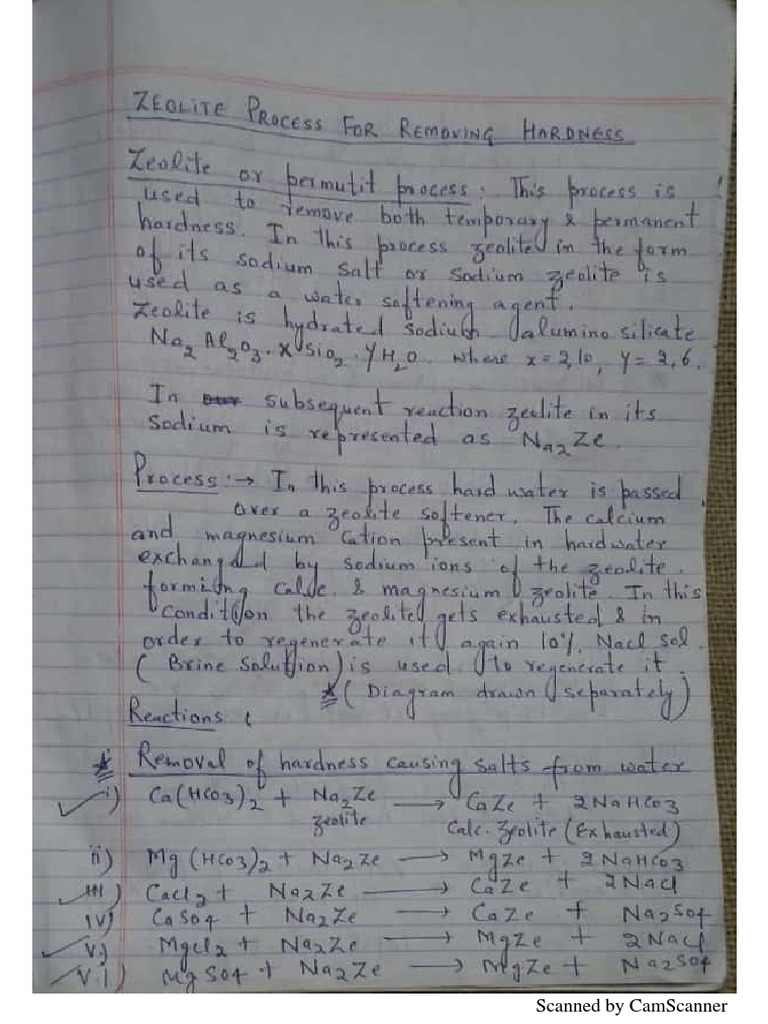 ZEOLITE PROCESS FOR REMOVING HARDNESS
Zeolite or permutit process : This process is
used to remove both temporary & permanent
hardness. In this process zeolite in the form
of its sodium salt or sodium zeolite is
used as a water softening agent.
Zeolite is hydrated sodium alumino silicate
Na2 Al2O3. X SiO2. YH2O. where x = 2,10, Y = 2,6.
In subsequent reaction zeolite in its
sodium is represented as Na2Ze.
Process :→ In this process hard water is passed
over a zeolite softener. The calcium
and magnesium Cation present in hardwater
exchanged by sodium ions of the zeolite.
forming calc. & magnesium zeolite. In this
condition the zeolite gets exhausted & in
order to regenerate it again 10% NaCl sol.
(Brine Solution) is used to regenerate it.
★ (Diagram drawn separately)
Reactions :
★ Removal of hardness causing salts from water
✓ i) Ca(HCO3)2 + Na2Ze → CaZe + 2NaHCO3
zeolite Calc. Zeolite (Exhausted)
ii) Mg(HCO3)2 + Na2Ze → MgZe + 2NaHCO3
✓ III) CaCl2 + Na2Ze → CaZe + 2NaCl
IV) CaSO4 + Na2Ze → CaZe + Na2SO4
✓ V.) MgCl2 + Na2Ze → MgZe + 2NaCl
✓ V.I) MgSO4 + Na2Ze → MgZe + Na2SO4
Scanned by CamScanner